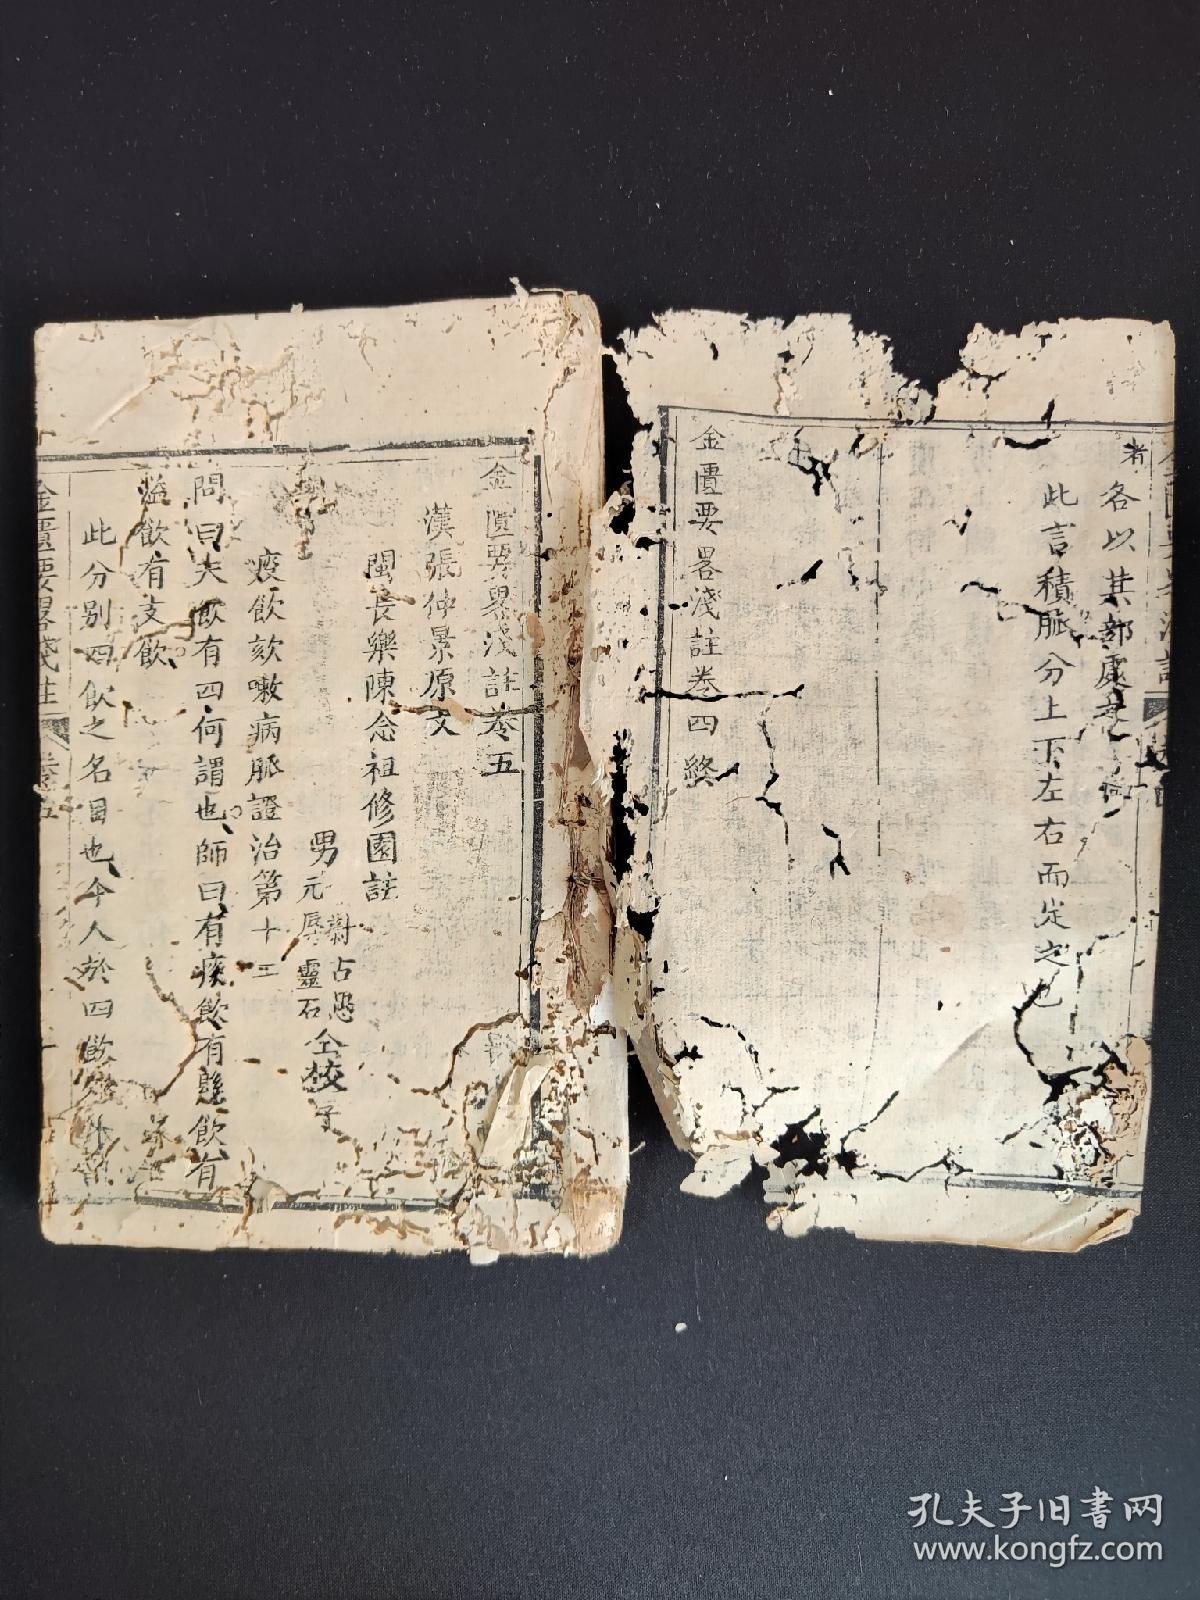 者
各以其部處之
此言積脈分上下左右而定之也
金匱要畧淺註卷四終
金匱要畧淺註卷五
漢張仲景原文
閩長樂陳念祖修園註
男元犀靈石
蔚古愚
仝校字
痰飲欬嗽病脈證治第十二
問曰夫飲有四何謂也師曰有痰飲有懸飲有
溢飲有支飲
此分別四飲之名目也今人於四飲外
金匱要畧淺註
卷五
孔夫子旧书网
www.kongfz.com